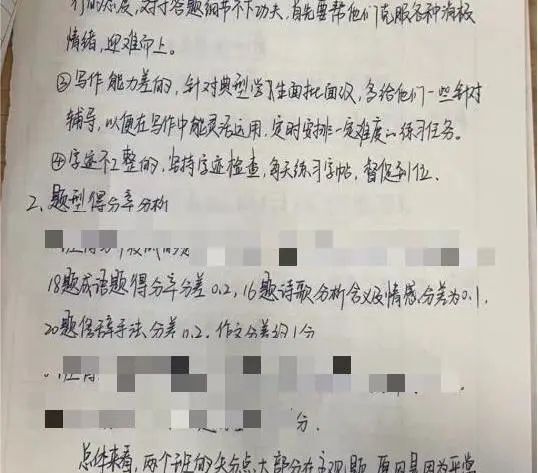 行的态度,对于答题细节不下功夫,首先要帮他们克服各种消极
情绪,迎难而上。
③写作能力差的,针对典型学生面批面改,多给他们一些针对
辅导,以便在写作中能灵活运用,定时安排一定难度的练习任务。
④字迹不工整的,坚持字迹检查,每天练习字帖,督促到位.
2、题型得分率分析
18题成语题得分率分差0.2,16题诗歌分析含义及情感,分差为0.1.
20题修辞手法分差0.2.作文分差约1分
分.
总体来看,两个班的失分点大部分在主观题,原因是因为平常